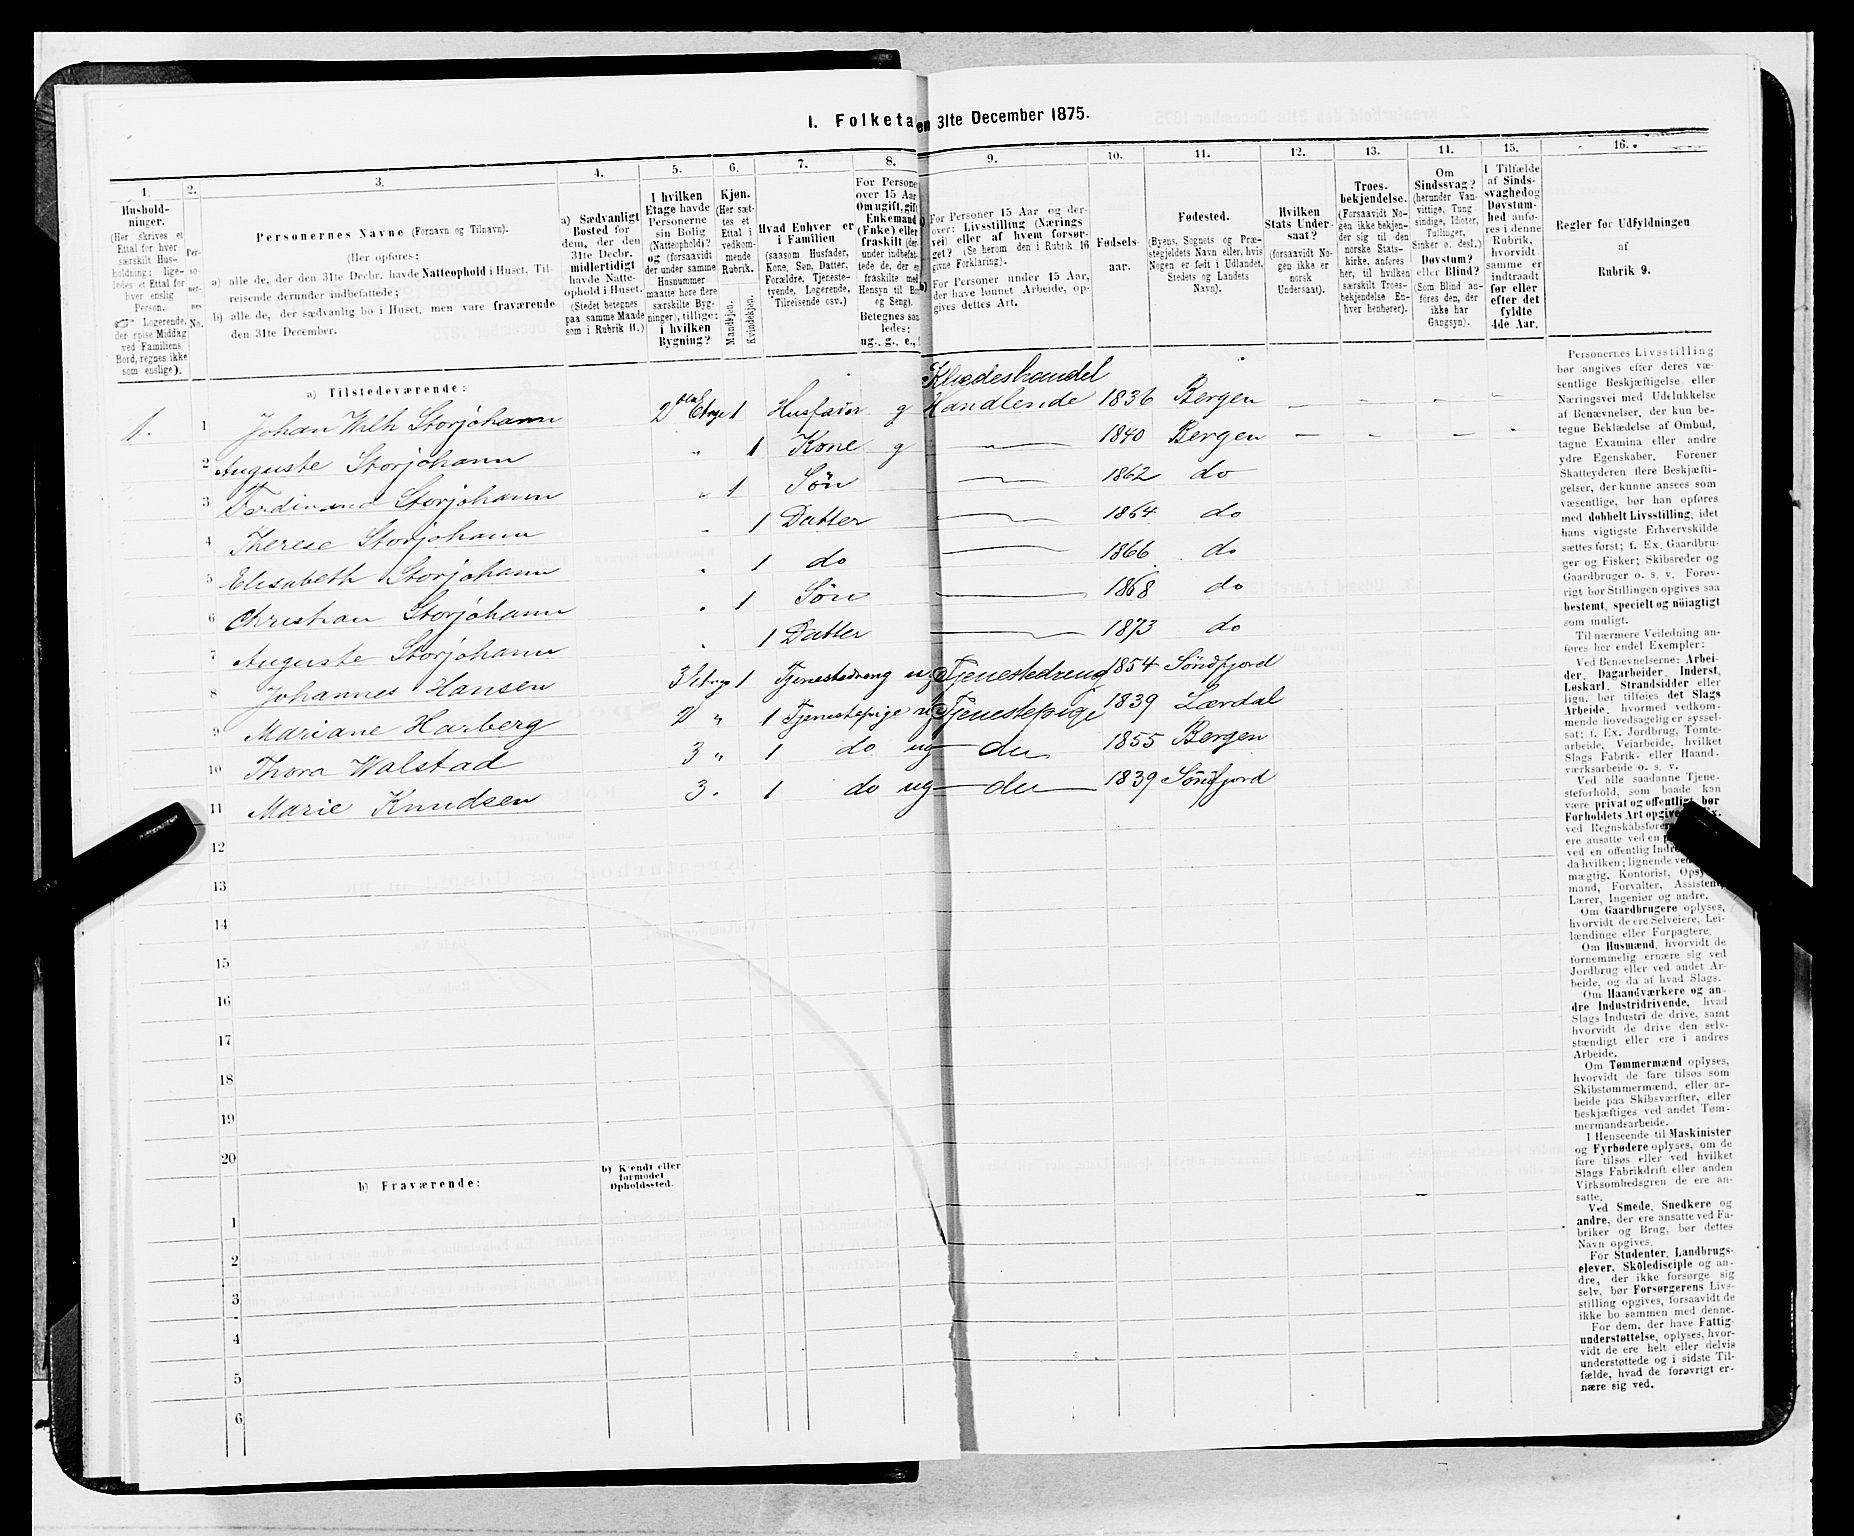 1. Folketa en 31te December 1875.
1. 2. 3. 4. 5. 6. 7. 8. 9. 10. 11. 12. 13. 14. 15. 16.
Hushold-
ninger.
(Her skrives et
Ettal for hver
særskilt Hus-
holdning; lige-
ledes et Ettal for
hver enslig
Person.
☞ Logerende,
der spise Middag
ved Familiens
Bord, regnes ikke
som enslige).
Per-
so-
ner-
nes
No.
Personernes Navne (Fornavn og Tilnavn).
(Her opføres:
a) alle de, der den 31te Decbr. havde Natteophold i Huset, Til-
reisende derunder indbefattede;
b) alle de, der sædvanlig bo i Huset, men vare fraværende
den 31te December.
a) Sædvanligt
Bosted for
dem, der den
31te Decbr.
midlertidigt
havde Natte-
ophold i Huset.
(Stedet betegnes
paa samme Maade
som i Rubrik 11.)
I hvilken
Etage havde
Personerne
sin Bolig
(Natteophold)?
og (forsaavidt
der under samme
Husnummer
maatte høre flere
særskilte Byg-
ninger), tillige:
i hvilken
Bygning?
Kjøn.
(Her sæt-
tes et
Ettal i
vedkom-
mende
Rubrik.
Mandkjøn.
Kvindekjøn.
Hvad Enhver er
i Familien
(saasom Husfader,
Kone, Søn, Datter,
Forældre, Tjeneste-
tyende, Logerende,
Tilreisende osv.)
For Persone
over 15 Aar
Om ugift, gift
Enkemand
(Enke) eller
fraskilt (der
under indbefat-
tede de, der e
fraskilte med
Hensyn til Bo
og Seng).
Betegnes saa
ledes:
ug., g., e.,
For Personer 15 Aar og der-
over: Livsstilling (Nærings
vei) eller af hvem forsør-
get? (Se herom den i Rubrik 16
givne Forklaring).
For Personer under 15 Aar,
der have lønnet Arbeide, op-
gives dettes Art.
Fødsels-
aar.
Fødested.
(Byens, Sognets og Præ-
stegjeldets Navn eller, hvis
Nogen er født i Udlandet,
Stedets og Landets
Navn).
Hvilken
Stats Under-
saat?
(forsaavidt No-
gen ikke er
norsk
Undersaat).
Troes-
bekjendelse.
(Forsaavidt No-
gen ikke bekjen-
der sig til den
norske Stats-
kirke, anføres
her, til hvilken
særskilt Troes-
bekjendelse En-
hver henhører).
Om
Sindssvag?
(herunder Van-
vittige, Tung
sindige, Idioter,
Tullinger,
Sinker o. desl.)
Døvstum?
eller Blind?
(Som Blind an-
føres den, der
ikke har
Gangsyn).
I Tilfælde
af Sinds-
svaghed og
Døvstum-
hed anfø-
res i denne
Rubrik,
hvorvidt
samme er
indtraadt
før eller
efter det
fyldte
4de Aar.
Regler for Udfyldningen
af
Rubrik 9.
a) Tilstedeværende:
Klædeshandel
1. 1 Johan Wilh Storjohann 2den Etage 1 Husfader g Handlende 1836 Bergen — - - -
2 Auguste Storjohann " 1 Kone g — 1840 Bergen — - — -
3 Ferdinand Storjohann " 1 Søn — 1862 do
4 Therese Storjohann " 1 Datter — 1864 do
5 Elisabeth Storjohann " 1 do — 1866 do
6 Christian Storjohann " 1 Søn — 1868 do
7 Auguste Storjohann " 1 Datter — 1873 do
8 Johannes Hansen 3 Etage 1 Tjenestedreng ug Tjenestedreng 1854 Søndfjord
9 Mariane Harberg 2 " 1 Tjenestepige ug Tjenestepige 1839 Lærdal
10 Thora Walstad 3 " 1 do ug — do 1855 Bergen
11 Marie Knudsen 3 " 1 do ug — do — 1839 Søndfjord
12
13
14
15
16
17
18
19
20
b) Fraværende:
b) Kjendt eller
formodet
Opholdssted.
1
2
3
4
5
6
Personernes Livsstilling
bør angives efter deres væ-
sentlige Beskjæftigelse eller
Næringsvei med Udelukkelse
af Benævnelser, der kun be-
tegne Beklædelse af Ombud,
tagne Examina eller andre
ydre Egenskaber. Forener
Skatteyderen flere Beskjæfti-
gelser, der kunne ansees som
væsentlige, bør han opføres
med dobbelt Livsstilling, idet
hans vigtigste Erhvervskilde
sættes først; f. Ex. Gaardbru-
ger og Fisker; Skibsreder og
Gaardbruger o. s. v. Forøv-
rigt bør Stillingen opgives saa
bestemt, specielt og nöiagtigt
som muligt.
Til nærmere Veiledning an-
føres her endel Exempler:
Ved Benævnelserne: Arbei-
der, Dagarbeider, Inderst,
Løskarl, Strandsidder eller
lign. bør tilføies det Slags
Arbeide, hvormed vedkom-
mende hovedsagelig er syssel-
sat; f. Ex. Jordbrug, Tomte-
arbeide, Veiarbeide, hvilket
Slags Fabrik- eller Haand-
værksarbeide o. s. v.
Ved alle saadanne Tjene-
steforhold, som baade kan
være privat og offentligt, bør
Forholdets Art opgives, Ex.
ved Regnskabsfører
ere ansatte ved en
ved en offentlig Indre
da hvilken; lignende ved
mægtig, Kontorist, Opsy
mand, Forvalter, Assistent,
Lærer, Ingeniør og andre.
Om Gaardbrugere oplyses,
hvorvidt de ere Selveiere, Lei-
lændinge eller Forpagtere.
Om Husmænd, hvorvidt de
fornemmelig ernære sig ved
Jordbrug eller ved andet Ar-
beide, og da af hvad Slags.
Om Haandværkere og an-
dre Industridrivende, hvad
Slags Industri de drive, samt
hvorvidt de drive den selv-
stændigt eller ere i andres
Arbeide.
Om Tømmermænd oplyses,
hvorvidt de fare tilsøs som
Skibstømmermænd, eller ar-
beide paa Skibsværfter, eller
beskjæftiges ved andet Tøm-
mermandsarbeide.
I Henseende til Maskinister
og Fyrbødere oplyses, om de
fare tilsøs eller ved hvilket
Slags Fabrikdrift eller anden
Virksomhedsgren de ere an-
satte.
Ved Smede, Snedkere og
andre, der ere ansatte ved Fa-
briker og Brug, bør dettes
Navn opgives.
For Studenter, Landbrugs-
elever, Skoledisciple og an-
dre, der ikke forsørge sig
selv, bør Forsørgerens Livs-
stilling opgives, forsaavidt de
ikke bo sammen med denne.
For dem, der have Fattig-
understøttelse, oplyses, hvor-
vidt de ere helt eller delvis
understøttede og i sidste Til-
fælde, hvad de forøvrigt er-
nære sig ved.